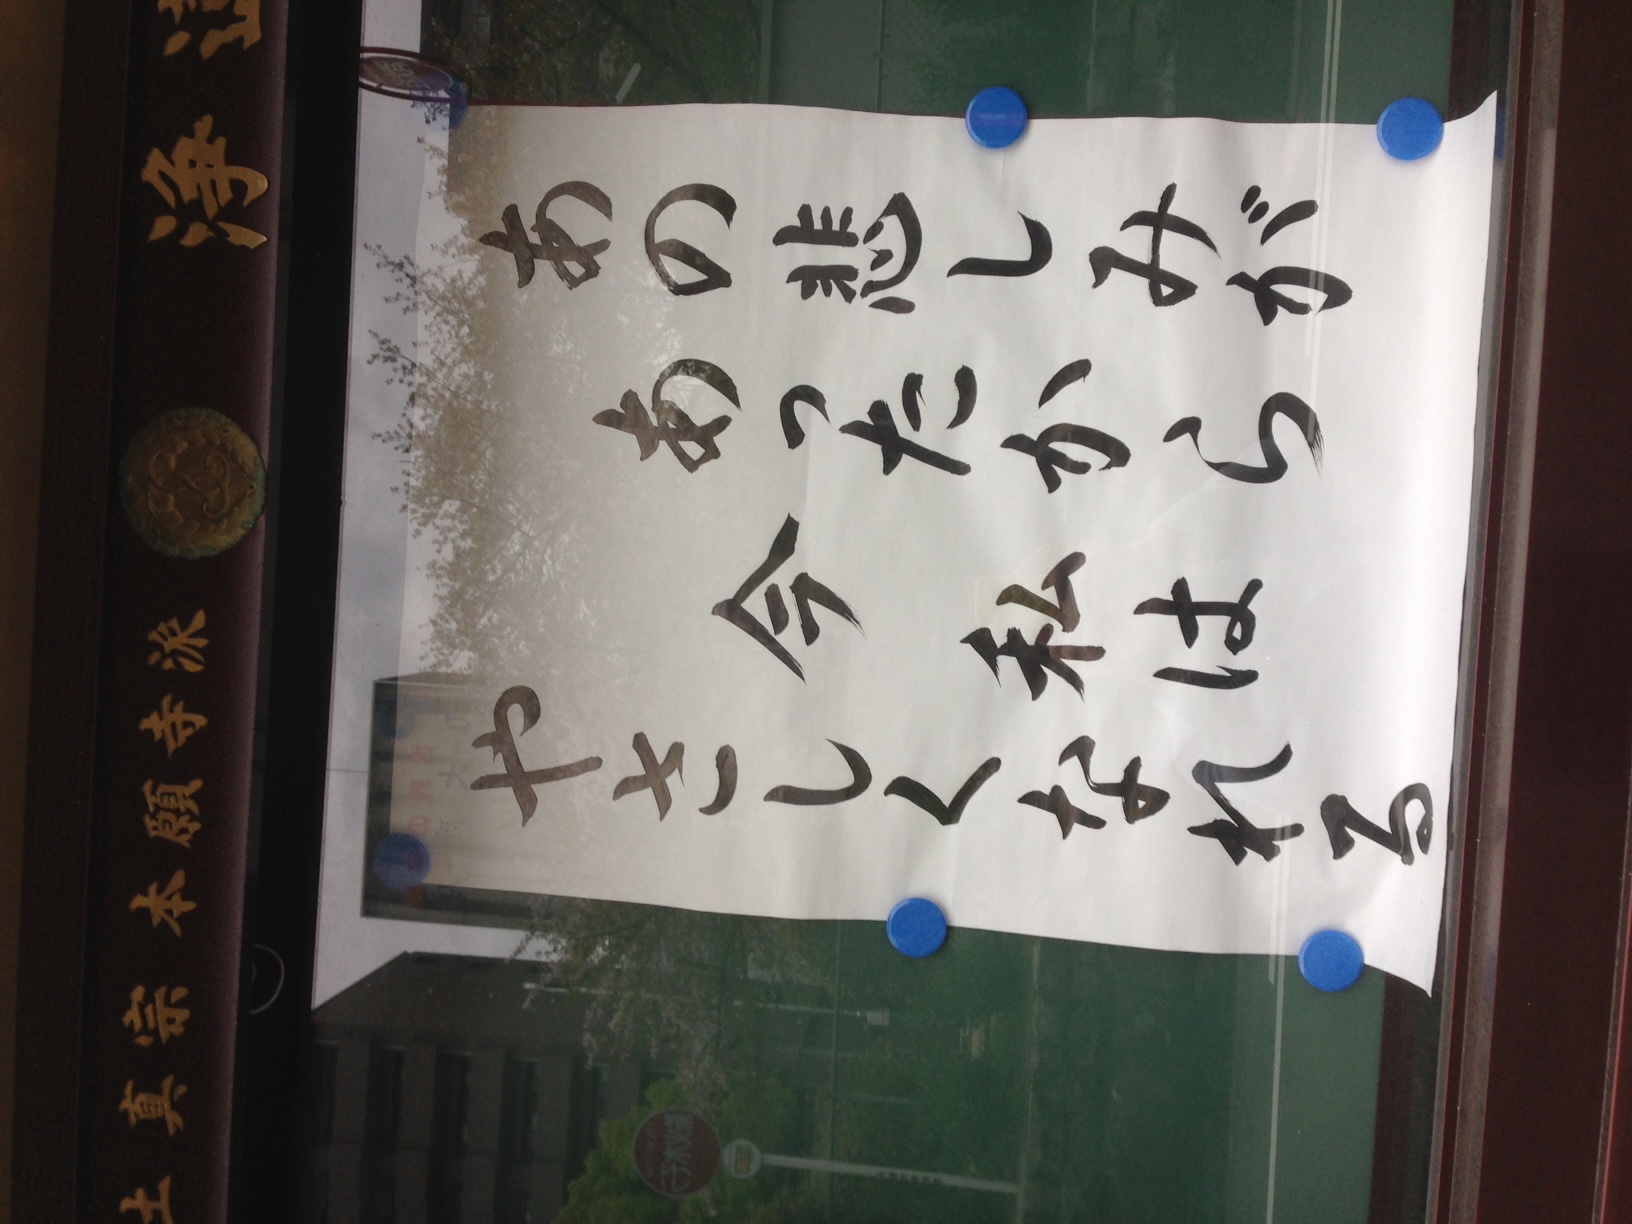 土真宗本願寺派 浄
あの悲しみが
あったから
今 私は
やさしくなれる